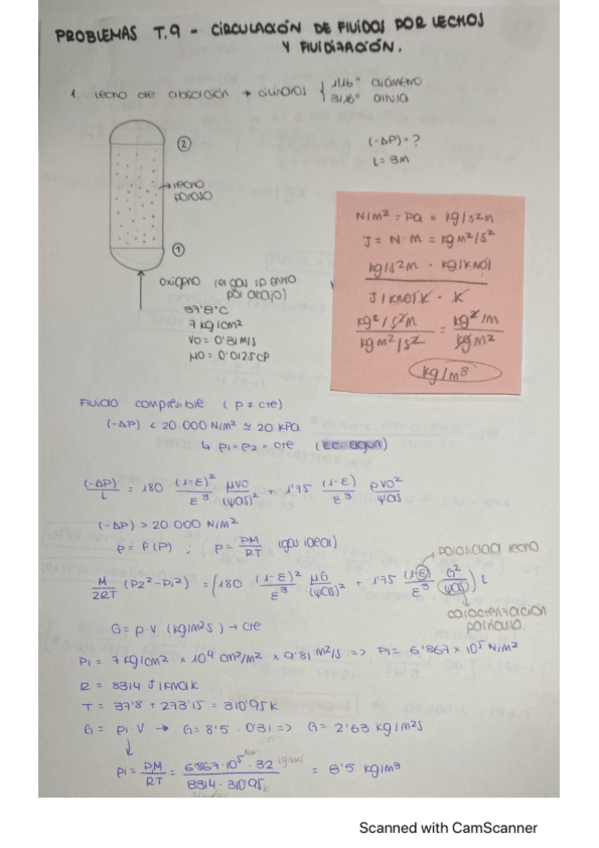 PROBLEMAS T.9 - CIRCULACIÓN DE FLUIDOS POR LECHOS
Y FLUIDIZACIÓN.
1. Lecho de absorción → cilindros { 1/16" diámetro
3/16" altura
(-ΔP) = ?
L = 3M
②
→ lecho
poroso
①
oxígeno (el gas ip entra
por abajo)
37'8°C
7 kg/cm²
V0 = 0'31 M/s
μ0 = 0'0125 CP
N/m² = Pa = kg/s²m
J = N·M = kg m²/s²
kg/s²m · kg/kmol
J/kmol K · K
kg²/s²m
kg m²/s²
= kg²/m
kg m²
kg/m³
Fluido compresible (ρ ≠ cte)
(-ΔP) < 20.000 N/m² ≃ 20 kPa
↳ ρ1 = ρ2 = cte (Ec. Ergun)
(-ΔP)/L = 180 (1-ε)²/ε³ μV0/(ψds)² + 1'75 (1-ε)/ε³ ρV0²/ψds
(-ΔP) > 20.000 N/m²
ρ = f(P) ; ρ = PM/RT (gas ideal)
porosidad lecho
M/2RT (P2² - P1²) = (180 (1-ε)²/ε³ μG/(ψds)² + 1'75 (1-ε)/ε³ G²/ψds) L
caracterización
partícula.
G = ρ·V (kg/m²s) → cte
P1 = 7 kg/cm² × 10⁴ cm²/m² × 9'81 m²/s => P1 = 6'867 × 10⁵ N/m²
R = 8314 J/kmolK
T = 37'8 + 273'15 = 310'95 K
G = ρ1·V → G = 8'5 · 0'31 => G = 2'63 kg/m²s
↓
ρ1 = PM/RT = 6'867·10⁵ · 32 / 8314 · 310'95 = 8'5 kg/m³
Scanned with CamScanner